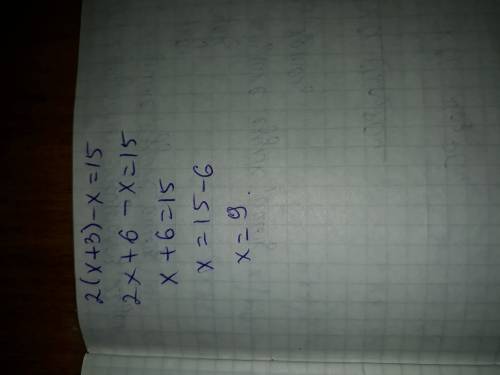 2(x+3)-x=15
2x+6-x=15
x+6=15
x=15-6
x=9.